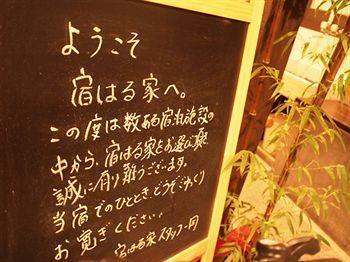 ようこそ
宿はる家へ。
この度は数ある宿泊施設の
中から、宿はる家をお選び頂き
誠に有り難うございます。
当宿でのひととき、どうぞごゆっくり
お寛ぎください。
宿はる家スタッフ一同